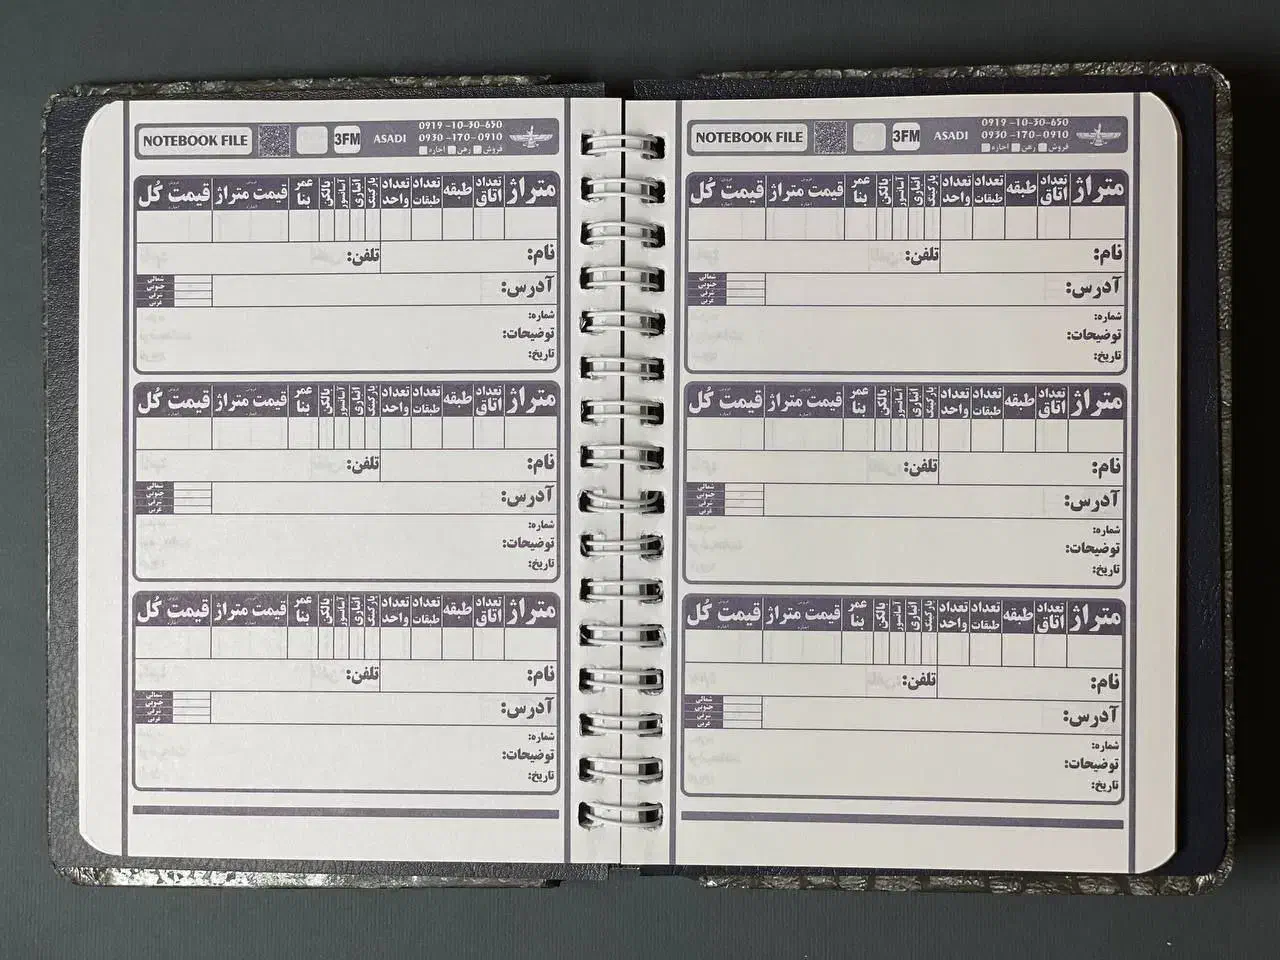 NOTEBOOK FILE 3FM ASADI 0919 -10-30-650
0930 -170-0910
فروش رهن اجاره
متراژ تعداد اتاق طبقه تعداد طبقات تعداد واحد پارکینگ انباری آسانسور بالکن عمر بنا قیمت متراژ قیمت کُل
نام: تلفن:
آدرس: شمالی
جنوبی
شرقی
غربی
شماره:
توضیحات:
تاریخ:
متراژ تعداد اتاق طبقه تعداد طبقات تعداد واحد پارکینگ انباری آسانسور بالکن عمر بنا قیمت متراژ قیمت کُل
نام: تلفن:
آدرس: شمالی
جنوبی
شرقی
غربی
شماره:
توضیحات:
تاریخ:
متراژ تعداد اتاق طبقه تعداد طبقات تعداد واحد پارکینگ انباری آسانسور بالکن عمر بنا قیمت متراژ قیمت کُل
نام: تلفن:
آدرس: شمالی
جنوبی
شرقی
غربی
شماره:
توضیحات:
تاریخ:
NOTEBOOK FILE 3FM ASADI 0919 -10-30-650
0930 -170-0910
فروش رهن اجاره
متراژ تعداد اتاق طبقه تعداد طبقات تعداد واحد پارکینگ انباری آسانسور بالکن عمر بنا قیمت متراژ قیمت کُل
نام: تلفن:
آدرس: شمالی
جنوبی
شرقی
غربی
شماره:
توضیحات:
تاریخ:
متراژ تعداد اتاق طبقه تعداد طبقات تعداد واحد پارکینگ انباری آسانسور بالکن عمر بنا قیمت متراژ قیمت کُل
نام: تلفن:
آدرس: شمالی
جنوبی
شرقی
غربی
شماره:
توضیحات:
تاریخ:
متراژ تعداد اتاق طبقه تعداد طبقات تعداد واحد پارکینگ انباری آسانسور بالکن عمر بنا قیمت متراژ قیمت کُل
نام: تلفن:
آدرس: شمالی
جنوبی
شرقی
غربی
شماره:
توضیحات:
تاریخ: